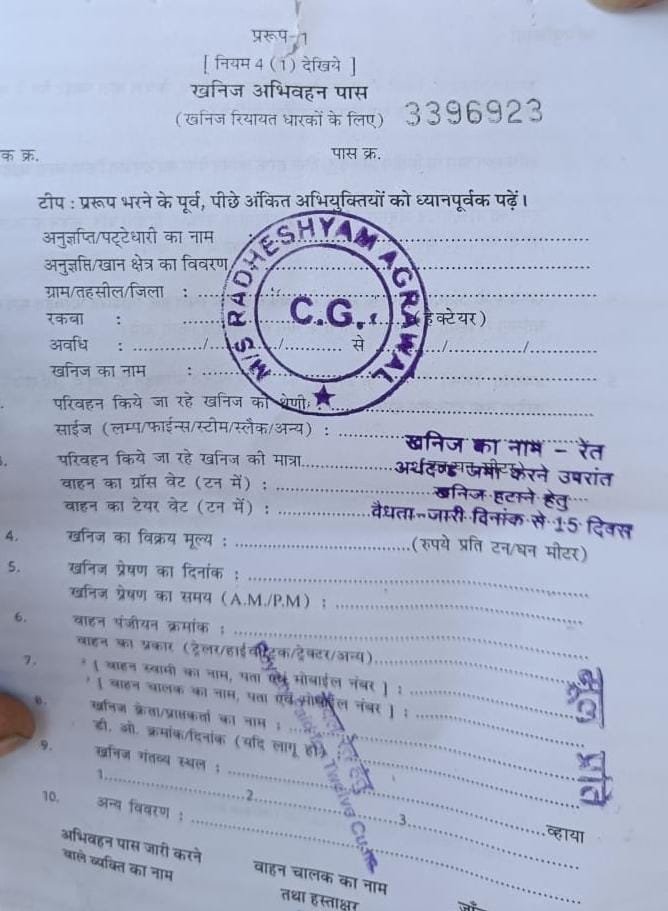 प्ररूप-1
[ नियम 4 (1) देखिये ]
खनिज अभिवहन पास
(खनिज रियायत धारकों के लिए) 3396923
क क्र. पास क्र.
टीप : प्ररूप भरने के पूर्व, पीछे अंकित अभियुक्तियों को ध्यानपूर्वक पढ़ें।
अनुज्ञप्ति/पट्टेधारी का नाम :
अनुज्ञप्ति/खान क्षेत्र का विवरण
ग्राम/तहसील/जिला :
रकबा : (हेक्टेयर)
अवधि : ....../....../...... से ....../....../......
खनिज का नाम :
M/S RADHESHYAM AGRAWAL
C.G.
परिवहन किये जा रहे खनिज की श्रेणी:
साईज (लम्प/फाईन्स/स्टीम/स्लैक/अन्य) :
खनिज का नाम - रेत
परिवहन किये जा रहे खनिज की मात्रा
अर्थदण्ड जमा करने उपरांत
वाहन का ग्रॉस वेट (टन में) :
खनिज हटाने हेतु
वाहन का टेयर वेट (टन में) :
वैधता-जारी दिनांक से 15 दिवस
4. खनिज का विक्रय मूल्य : (रुपये प्रति टन/घन मीटर)
5. खनिज प्रेषण का दिनांक :
खनिज प्रेषण का समय (A.M./P.M) :
6. वाहन पंजीयन क्रमांक :
वाहन का प्रकार (ट्रेलर/हाईवा/ट्रक/ट्रेक्टर/अन्य)
7. [ वाहन स्वामी का नाम, पता एवं मोबाईल नंबर ] :
[ वाहन चालक का नाम, पता एवं मोबाईल नंबर ] :
8. खनिज क्रेता/प्राप्तकर्ता का नाम :
डी. ओ. क्रमांक/दिनांक (यदि लागू हो)
9. खनिज गंतव्य स्थल :
1. 2. 3. व्हाया
10. अन्य विवरण :
मूल प्रति
रेत हेतु
Twelve Cu.me
अभिवहन पास जारी करने
वाले व्यक्ति का नाम
वाहन चालक का नाम
तथा हस्ताक्षर